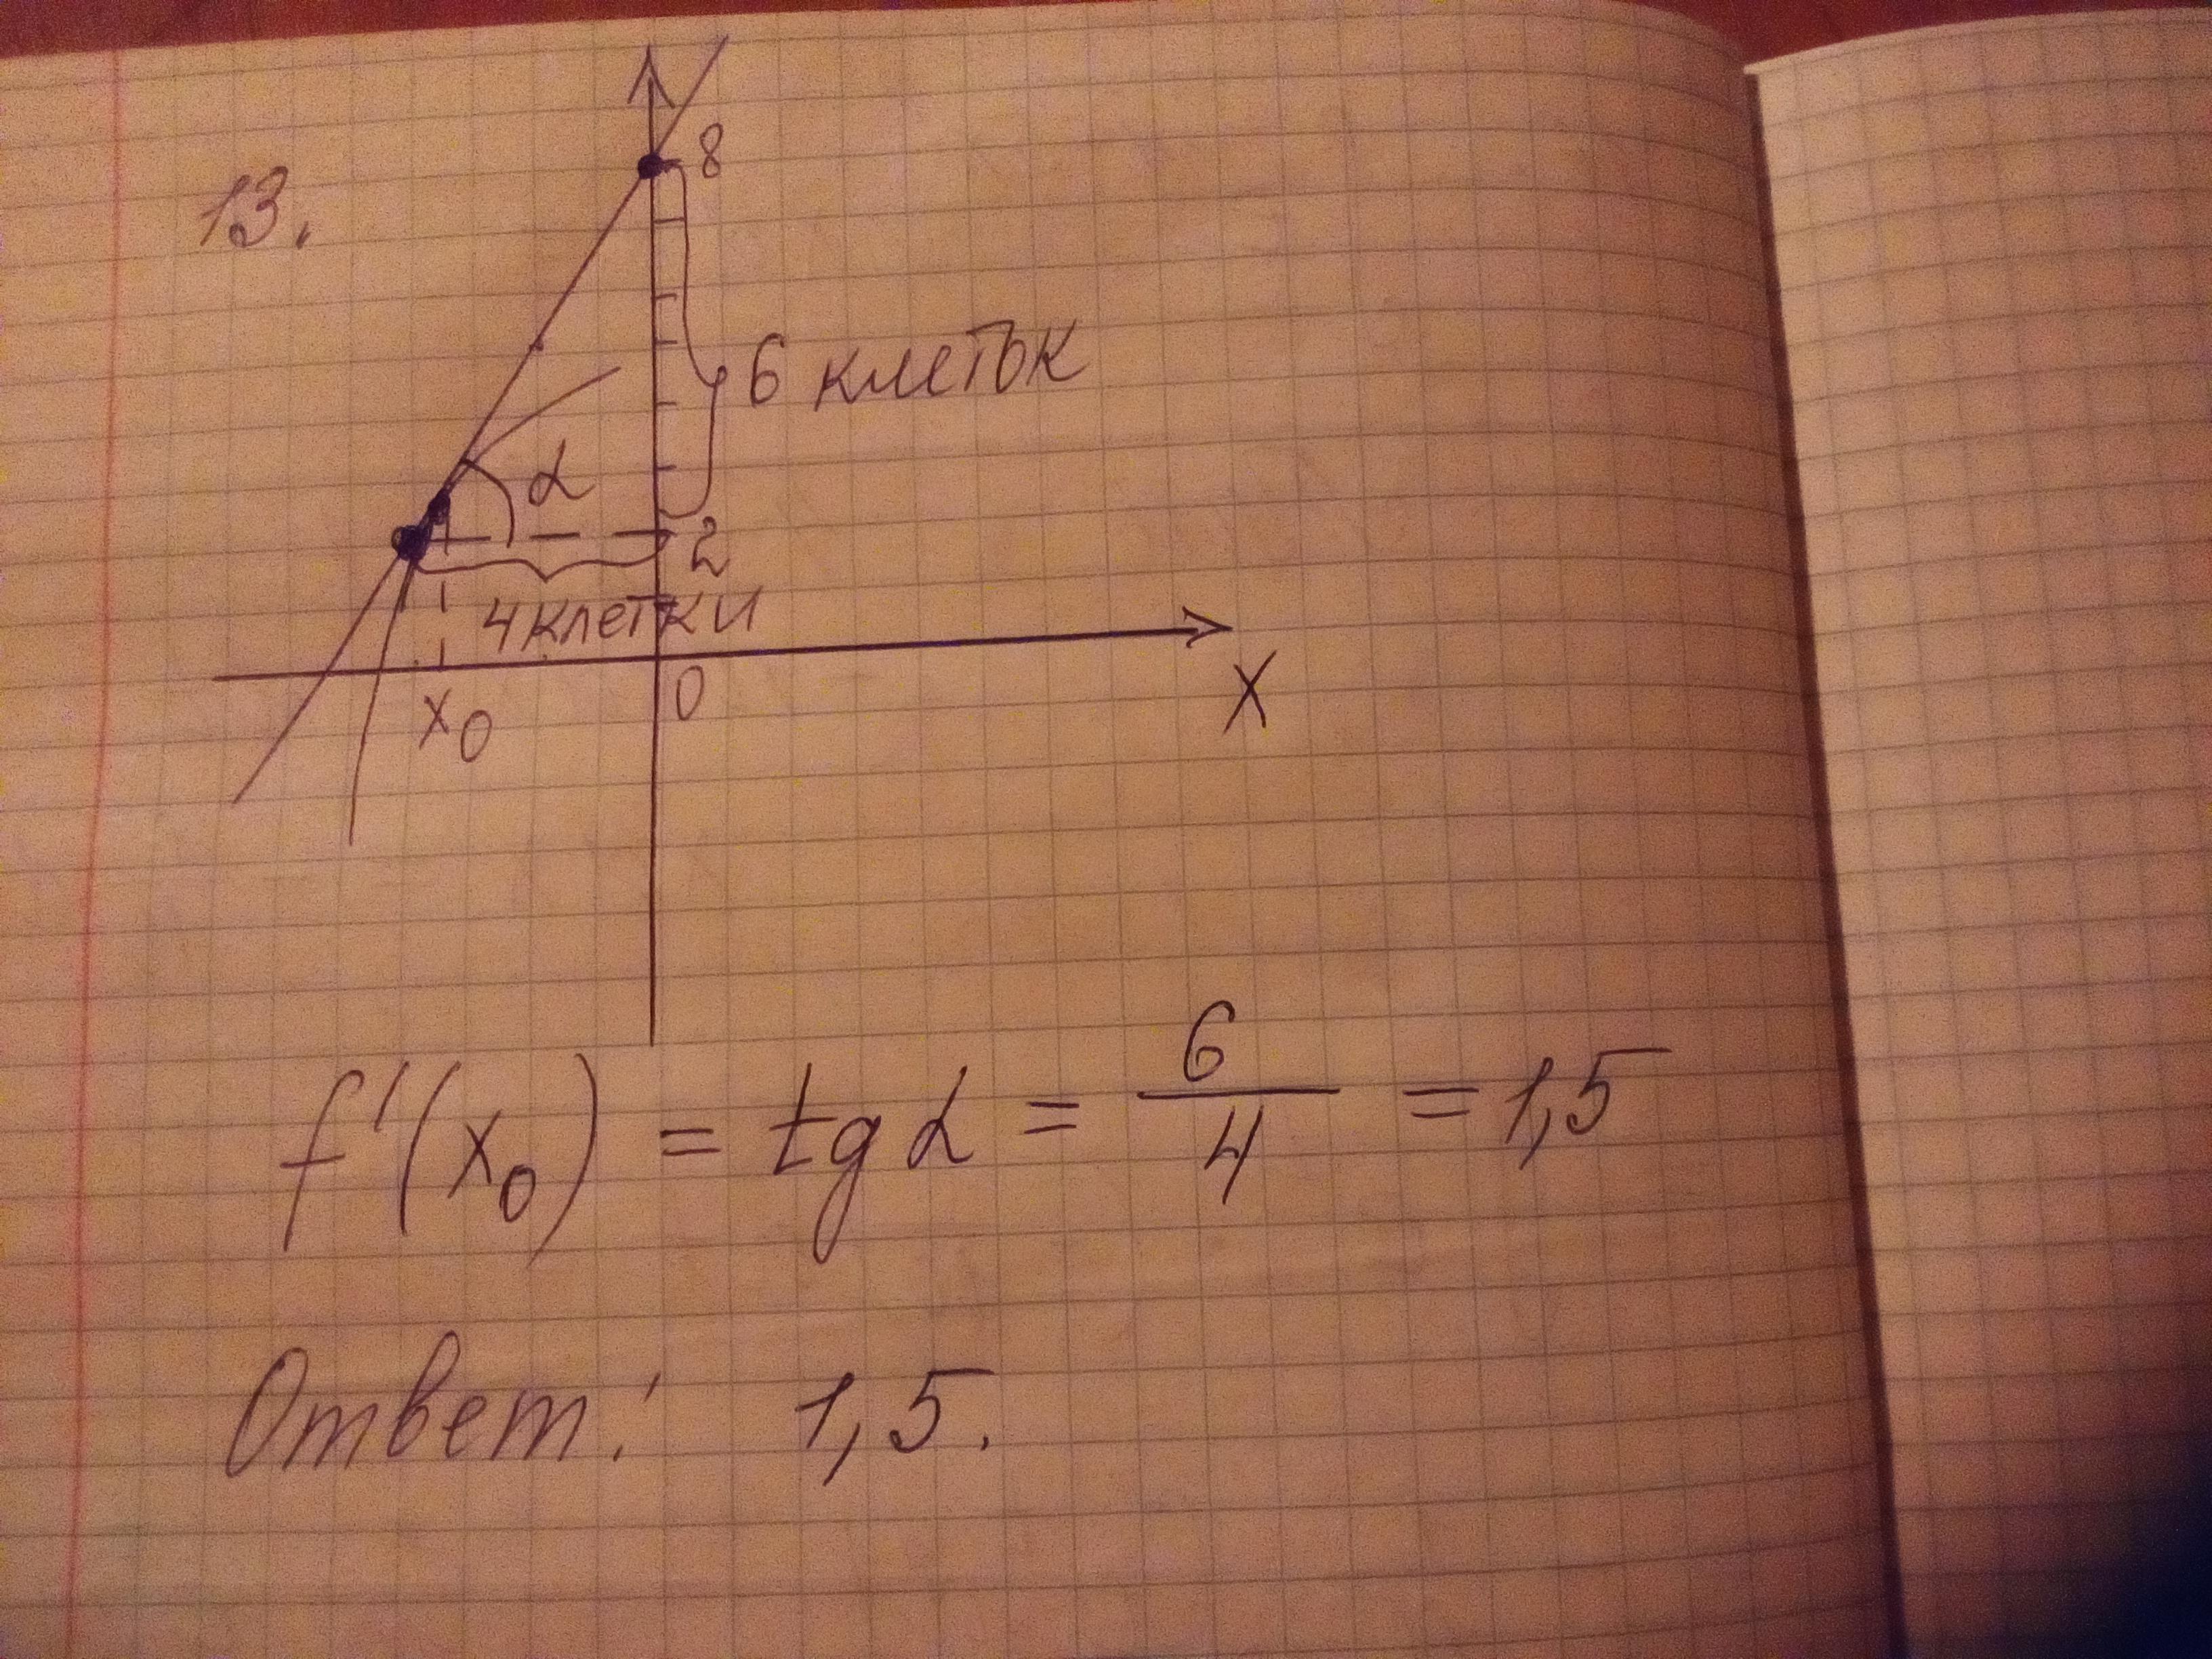 13.
8
6 клеток
α
2
4 клетки
x₀
0
X
f'(x₀) = tg α = 6/4 = 1,5
Ответ: 1,5.